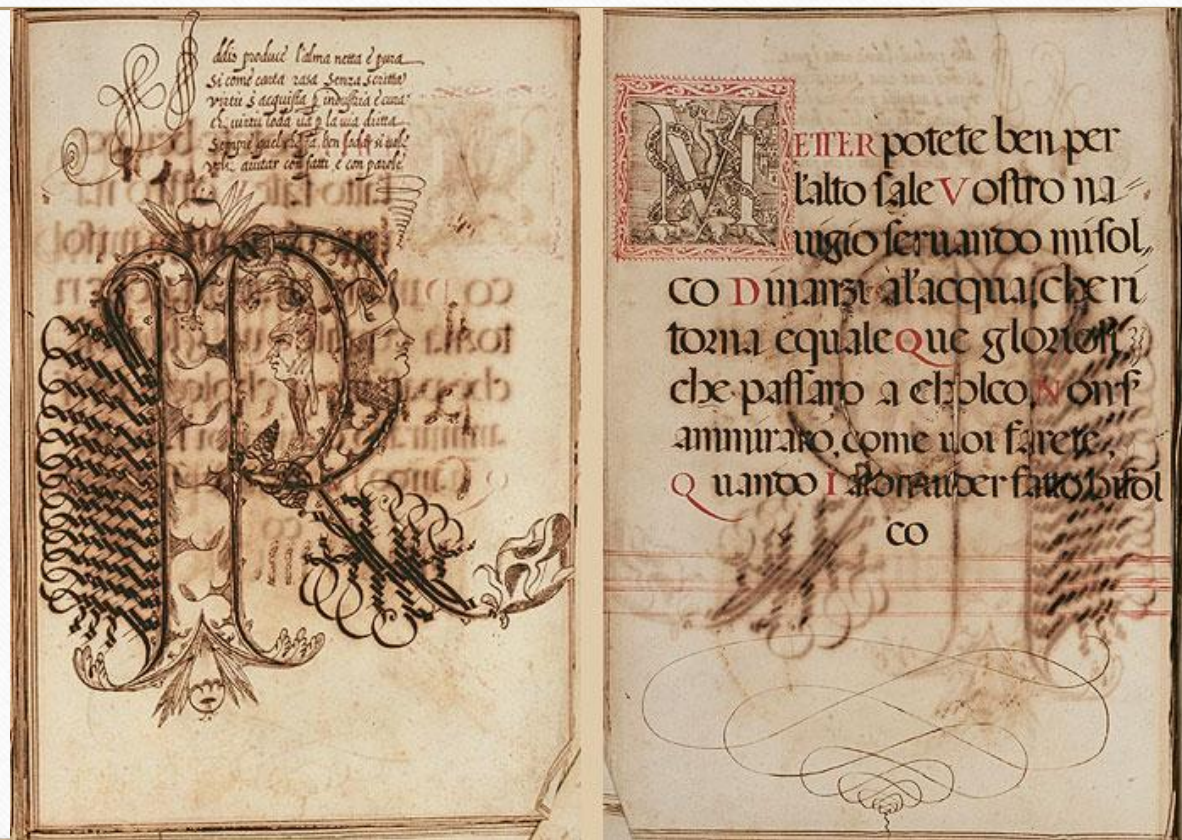 ddio produce l'alma netta è pura
Si come carta rasa Senza scritta
virtu s acquista p industria è cura
virtu p la via dritta
Sempre quel ben
aiutar con fatti è con parole
METTER potete ben per
l'alto sale Vostro na=
uigio seruando misol,
co Dinanzi al'acqua, che ri
torna equale Que gloriosi
che passaro a cholco Non s'
ammiraro, come uoi farete,
Quando fatto bifol
co